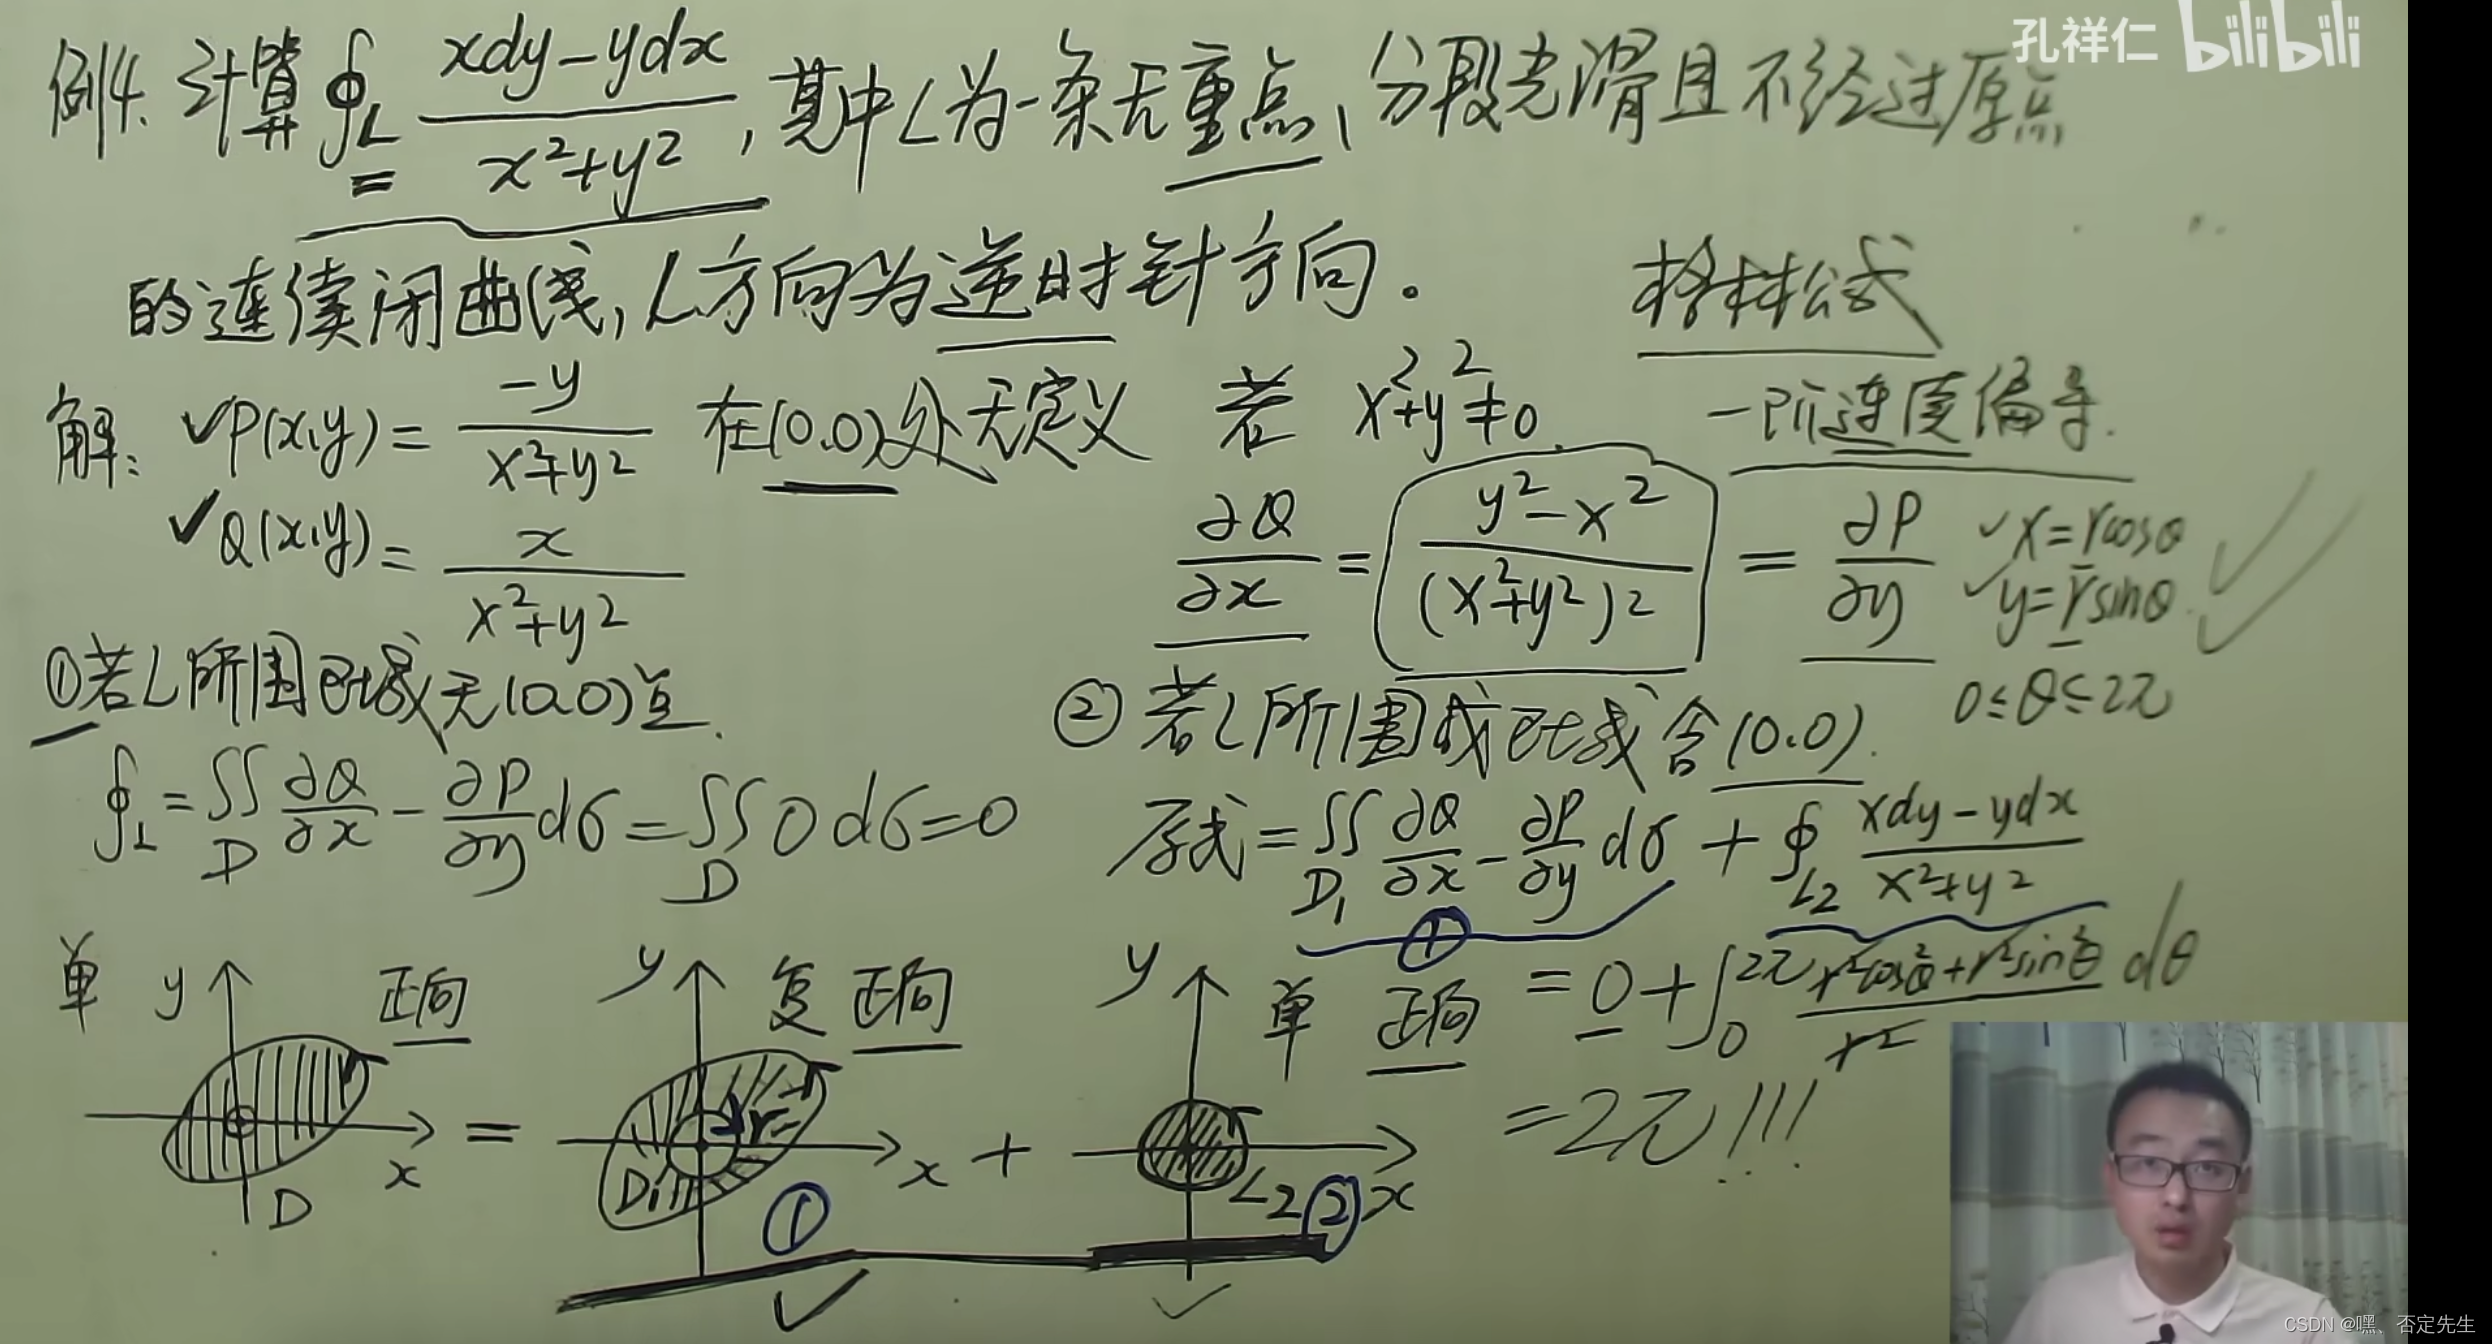 孔祥仁 bilibili
例4. 计算 ∮_L (xdy-ydx)/(x²+y²), 其中L为一条无重点、分段光滑且不经过原点
的连续闭曲线, L方向为逆时针方向。
格林公式
一阶连续偏导.
解: ✓P(x,y) = -y/(x²+y²) 在(0.0)处无定义 若 x²+y²≠0.
✓Q(x,y) = x/(x²+y²)
∂Q/∂x = (y²-x²)/(x²+y²)² = ∂P/∂y
✓x=rcosθ
✓y=rsinθ.
0≤θ≤2π
①若L所围区域无(0.0)点.
∮_L = ∬_D ∂Q/∂x - ∂P/∂y dσ = ∬_D 0 dσ = 0
②若L所围成区域含(0.0).
原式 = ∬_D₁ ∂Q/∂x - ∂P/∂y dσ + ∮_L2 (xdy-ydx)/(x²+y²)
①
= 0 + ∫₀^2π (r²cos²θ+r²sin²θ)/r² dθ
= 2π!!!
单 y 正向
x
D
=
y 复 正向
r
D₁
x
①
+
y 单 正向
L2 ② x
CSDN @嘿、否定先生